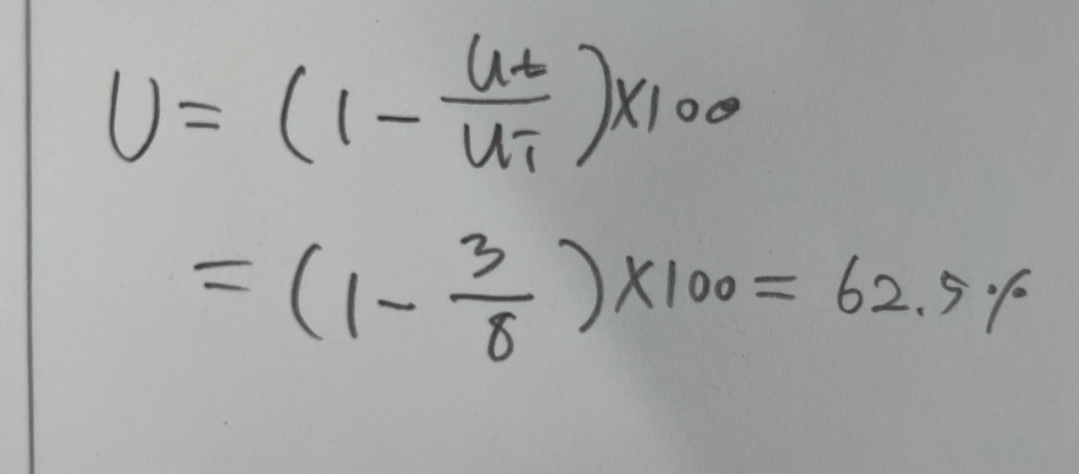 U = (1 - ut/ui) × 100
= (1 - 3/8) × 100 = 62.5%